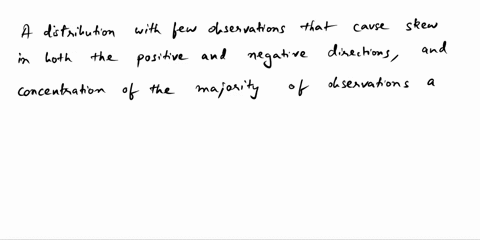 A distribution with few observations that cause skew
in both the positive and negative directions, and
concentration of the majority of observations a